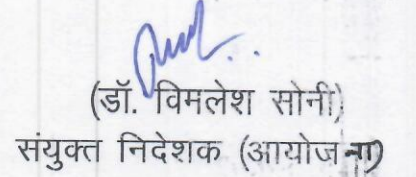 (डॉ. विमलेश सोनी)
संयुक्त निदेशक (आयोजना)